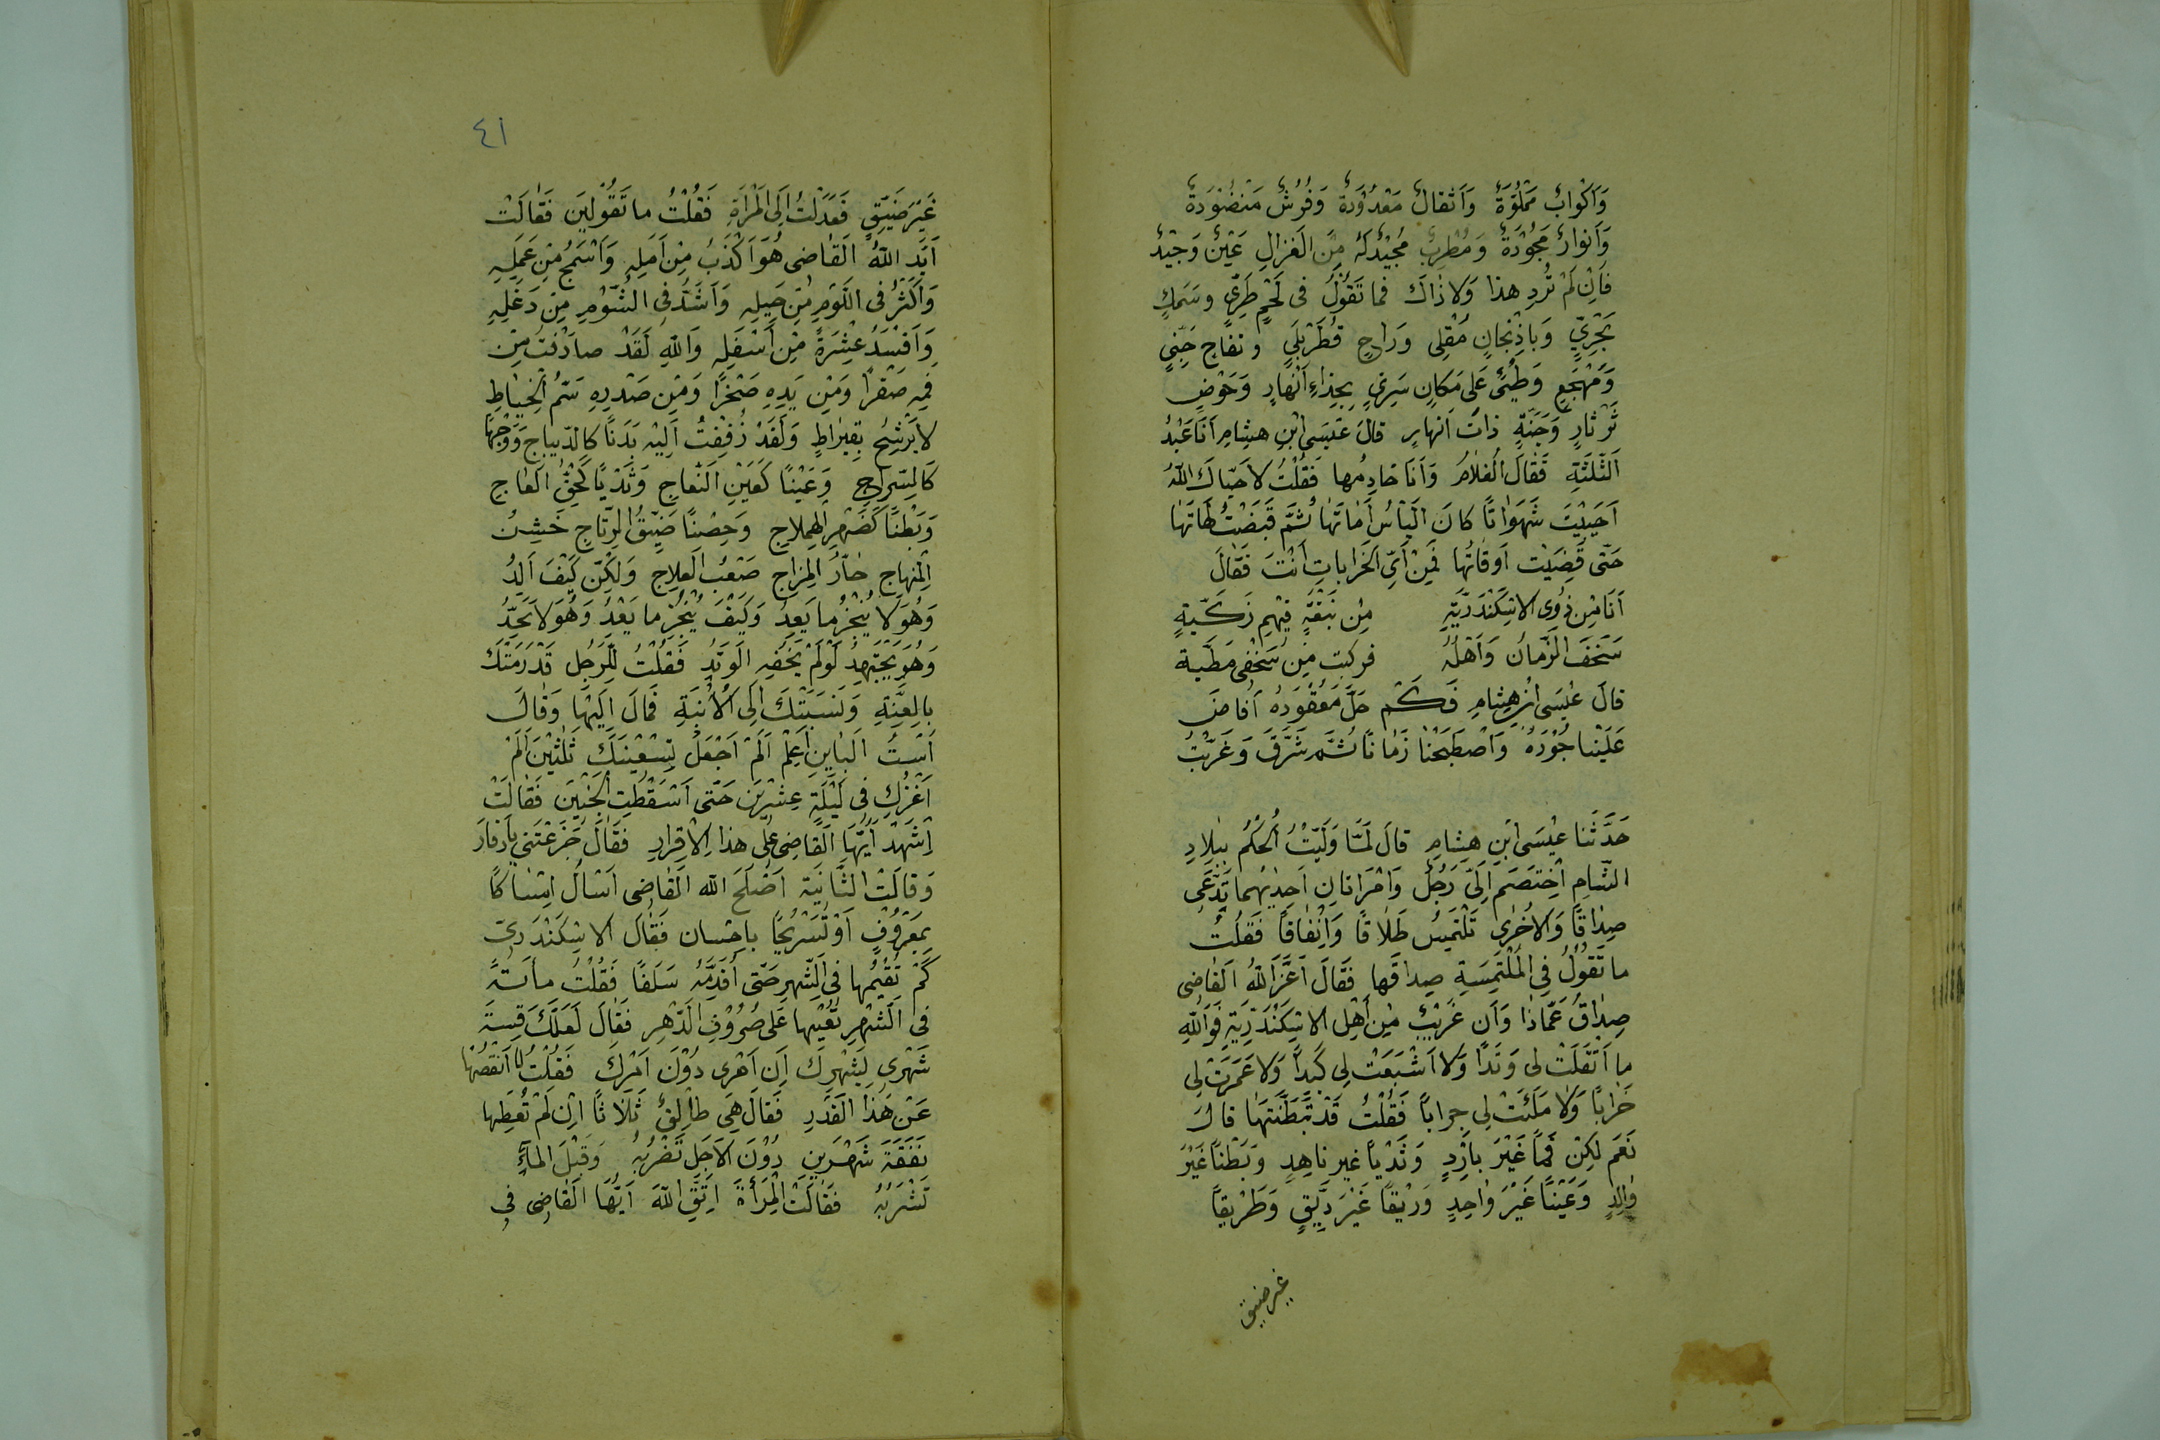 وَاَكْوابٌ مَمْلُوَّةٌ وَاَثقالٌ مَعْدُوْدَةٌ وَفُرُشٌ مَنْضُوْدَةٌ
وَاَنوارٌ مَجُوْدَةٌ وَمُطْرِبٌ مُجيْدٌ لَهُ مِنَ الغَزالِ عَيْنٌ وَجيْدٌ
فَاِنْ لَمْ تُرِدِ هذا وَلا ذاكَ فما تَقُوْلُ فى لَحْمٍ طَرِىٍّ وسَمكٍ
بَحْرِىٍّ وَباذِنْجانٍ مَقْلِى وَراحٍ قُطْرَبْلَىٍّ وتفاحٍ جَنِىٍّ
وَمَهْجَعٍ وَطِئٍّ عَلى مَكانٍ سَرِىٍّ بِحِذاءِ اَنْهارٍ وَحَوْضٍ
ثَرْثارٍ وَجَنَّةٍ ذاتَ اَنهارٍ قالَ عيْسَى ابْنِ هِشامِ اَنَا عَبْدُ
الثَّلثَةِ فَقالَ الْغلامُ وَاَنَا خادِمُها فَقُلْتُ لا حَيّاكَ اللهُ
اَحيَيْتَ شَهَواتًا كانَ اليَأسُ اَماتَها ثُمَّ قَبَضْتَ لَهاتَها
حَتّى قَضِيَت اَوقاتُها فَمِنْ اَىِّ الخَراباتِ اَنْتَ فَقالَ
اَنَا مِنْ ذَوِى الاسْكَنْدَرِيَّةِ مِنْ نَبْعَةٍ فيْهِمِ زَكيَّةٍ
سَخُفَ الزَّمانُ وَاَهْلُهُ فركبت مِنْ سُخْفى مَطيّة
قالَ عيْسَى ابْنِ هِشامِ فَكَمْ حَلَّ مَعْقُودَهُ اَفاضَ
عَلَيْنا جُوْدَهُ وَاصْطَبَحْنا زَمانًا ثُمَّ شَرَّقَ وَغَرَّبْتُ
حَدَّثَنا عيْسَى ابْنِ هِشامِ قالَ لَمّا وَلَيْتُ الْحُكْمُ بِبلادِ
الشّامِ اِخْتَصَمَ اِلَىَّ رَجُلٌ وَامْرَاتانِ اَحِدٰيهُما تَدَّعى
صِداقًا وَالاُخْرى تَلْتَمِسُ طَلاقًا وَاِنْفاقًا فَقُلْتُ
ما تَقُوْلُ فى الْمُلْتَمِسَةِ صِداقَها فَقالَ اَعَزَّ اللهُ القاضى
صِداقُ عَمّاذا وَاَنِ غَريْبٌ مِنْ اَهْلِ الاسْكَنْدَرِيَّةِ فَوَاللهِ
ما اَثْقَلَتْ لى وَتَدًا وَلا اَشْبَعَتْ لِى كَبِداً وَلا عَمَرَتْ لِى
خَرابًا وَلا مَلَئَتْ لِى جِرابًا فَقُلْتُ قَدْ تَبَطَّنْتَها قالَ
نَعَم لكِنْ فَمًا غَيْرَ بارِدٍ وَثَدْياً غير ناهِدٍ وَبَطْنًا غَيْرَ
والِدٍ وَعَيْنًا غَيْرَ واحِدٍ وَرِيْقاً غَيْرَ رَيِّقٍ وَطَريْقاً
غير ضيق
٤١
غَيْرَ ضَيِّقٍ فَعَدَلتُ اِلَى المَرأةِ فَقُلْتُ ما تَقُوْلِيْنَ فَقالَتْ
اَيَّدَ اللهُ القاضى هُوَ اَكْذَبُ مِنْ اَمَلِهِ وَاَسْمَجُ مِنْ عَمِلِهِ
وَاَكْثَرُ فى اللَّوْمِ مِنْ حِيلِهِ وَاَشَدُّ فى الشُّوْمِ مِنْ دَغلِهِ
وَاَفْسَدُ عِشْرَةً مِنْ اَسْفَلِهِ وَاللهِ لَقَدْ صادَفْتُ مِنْ
فمِهِ صَقْرًا وَمِنْ يَدِهِ صَخْرًا وَمِنْ صَدْرِهِ سَمُّ الْخِياطِ
لا يَرْشِحُ بِقيْراطٍ وَلَقَدْ زُفِفْتُ اِلَيْه بَدَنًا كالدّيباج وَوَجْهًا
كَالسِّراجِ وَعَيْنًا كَعَيْنِ النّعاجِ وَثَدْيًا كَحُقِّ العاجِ
وَبَطْنًا كَظَهْرِ الهِمْلاجِ وَحِصْنًا ضَيِّقُ الرِّتاجِ خَشِنُ
المِنْهاجِ حارُّ المِزاجِ صَعْبُ العِلاجِ وَلكِنْ كَيْفَ اَلِدُ
وَهُوَ لا يُنْجِزُ ما يَعِدُ وَكَيْفَ يُنْجِزُ ما يَعْدُ وَهُوَ لا يَجِدُ
وَهُوَ يَجْتَهِدُ لَوْ لَمْ يَخُنْهُ الوَتَدُ فَقُلْتُ لِلرَّجُلِ قَدْ رَمَتْكَ
بِالعِنَّةِ وَنَسَبَتْكَ اِلَى الاُبْنَةِ فَمالَ اِلَيْها وَقالَ
اَسْتُ البائِنِ اَعْلَمُ اَلَمْ اَجْعَلْ تِسْعِيْنَكِ ثَلاثِيْنَ اَلَمْ
اَغْزُكِ فى لَيْلَةٍ عِشْرِيْنَ حَتّى اَسْقَطْتِ الجَنِيْنَ فَقالَتْ
اِشْهَدْ اَيُّهَا القاضِى عَلى هذا الاِقْرارِ فَقالَ خَدَعْتَنى يا دَفارِ
وَقالَتْ الثّانِيَة اَصْلَحَ الله القاضى اَسْأَلُ اِمْساكًا
بِمَعْرُوْفٍ اَوْ تَسْرِيْحًا باِحسان فَقالَ الاسْكَنْدَرِىّ
كَمْ تُقيْمُها فى الشَّهرِ حَتّى اُقَدِّمَهُ سَلَفًا فَقُلْتُ مأتةً
فى الشَهْرِ تُعيْنُها عَلى صُرُوْفِ الدَّهْرِ فَقالَ لَعَلَّكَ قِسْتَ
شَهْرى بِشَهْرِكَ اِنَ اَمْرى دُوْنَ اَمْرِكَ فَقُلْتُ لا اَنْقُصُها
عَنْ هَذا القَدَرِ فَقالَ هِىَ طالِقٌ ثَلاثًا اِنْ لَمْ تُعْطِها
نَفَقَةَ شَهْرَيْنِ دُوْنَ الاَجَلِ تَضْرِبُهُ وَقَبْلَ الماءِ
تَشْرَبُهُ فَقالَتْ المِرأةُ اِتَّقِ اللهَ اَيُّهَا القاضِى فى